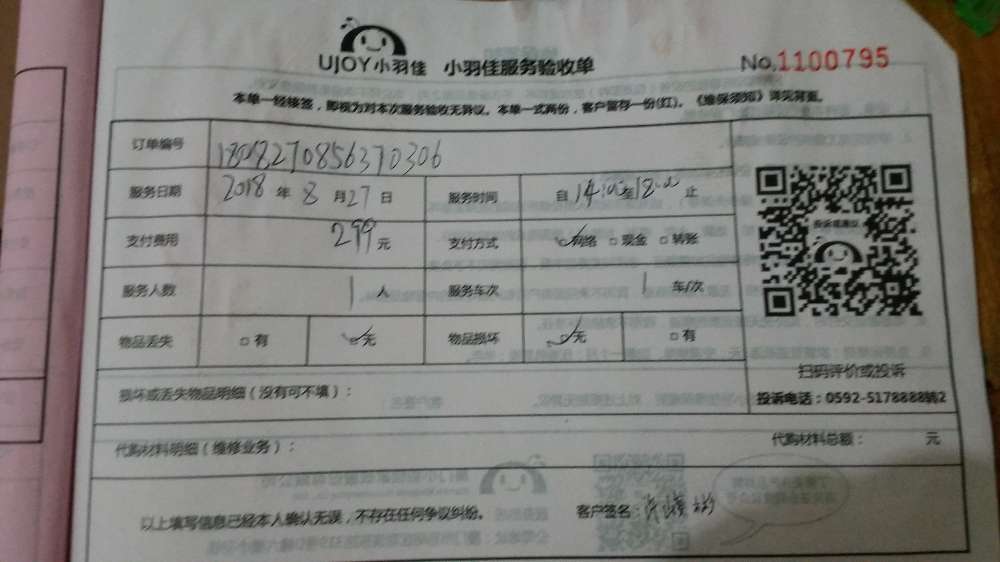 UJOY小羽佳 小羽佳服务验收单 No.1100795
本单一经接签，即视为对本次服务验收无异议。本单一式两份，客户留存一份(红)。《维保须知》详见背面。
订单编号 1808270856370306
服务日期 2018 年 8 月 27 日 服务时间 自 14:00 至 18:00 止
支付费用 299 元 支付方式 ☑网络 □现金 □转账
服务人数 1 人 服务车次 1 车/次
物品丢失 □有 ☑无 物品损坏 ☑无 □有
损坏或丢失物品明细（没有可不填）：
扫码评价或投诉
投诉电话：0592-5178888转2
代购材料明细（维修业务）： 代购材料总额： 元
以上填写信息已经本人确认无误，不存在任何争议纠纷。 客户签名：